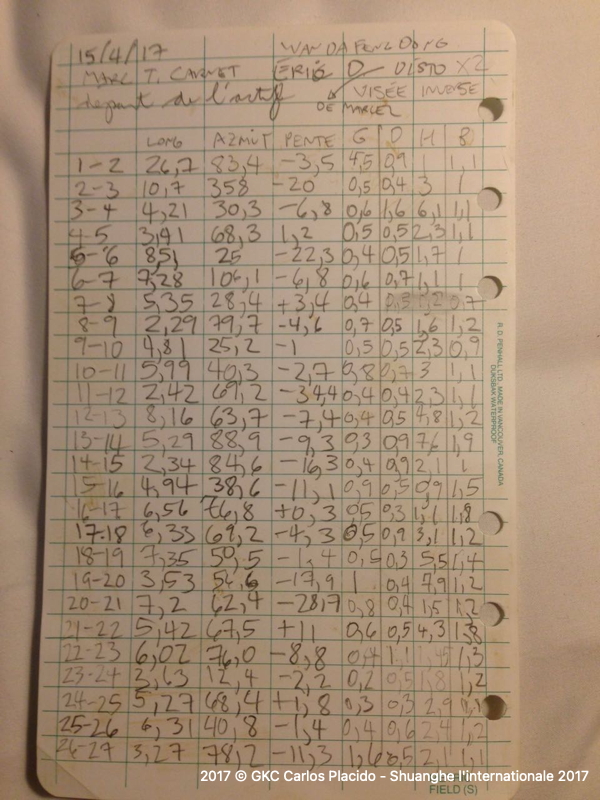 15/4/17 WANDAFENG DONG
MARC T. CARNET ERIC D DISTO X2
départ de l'actif DE MARCEL VISÉE INVERSE
LONG AZMUT PENTE G D H B
1-2 26,7 83,4 -3,5 4,5 0,9 1 1,1
2-3 10,7 358 -20 0,5 0,4 3 1
3-4 4,21 30,3 -6,8 0,6 1,6 6,1 1,1
4-5 3,41 68,3 1,2 0,5 0,5 2,3 1,1
5-6 8,51 25 -22,3 0,4 0,5 1,7 1
6-7 7,28 106,1 -6,8 0,6 0,7 1,1 1
7-8 5,35 28,4 +3,4 0,4 0,5 1,2 0,7
8-9 2,29 79,7 -4,6 0,7 0,5 1,6 1,2
9-10 4,81 25,2 -1 0,5 0,5 2,3 0,9
10-11 5,99 40,3 -2,7 0,8 0,7 3 1,1
11-12 2,42 69,2 -34,4 0,4 0,4 2,3 1,1
12-13 8,16 63,7 -7,4 0,4 0,5 4,8 1,2
13-14 5,29 88,9 -9,3 0,3 0,9 7,6 1,9
14-15 2,34 84,6 -16,3 0,4 0,9 2,1 1
15-16 4,94 38,6 -11,1 0,9 0,5 0,9 1,5
16-17 6,56 76,8 +0,3 0,5 0,3 1,1 1,8
17-18 6,33 69,2 -4,3 0,5 0,9 3,1 1,2
18-19 7,35 50,5 -1,4 0,5 0,3 5,5 1,4
19-20 3,53 54,6 -17,9 1 0,4 7,9 1,2
20-21 7,2 62,4 -28,7 0,8 0,4 1,5 1,2
21-22 5,42 67,5 +11 0,6 0,5 4,3 1,8
22-23 6,02 76,0 -8,8 0,4 1,1 1,45 1,3
23-24 3,63 12,4 -2,2 0,2 0,5 1,8 1,2
24-25 5,27 68,4 +1,8 0,3 0,3 2,9 1,1
25-26 6,31 40,8 -1,4 0,4 0,6 2,4 1,2
26-27 3,27 78,2 -11,3 1,6 0,5 2,1 1,1
R. D. PENHALL LTD., MADE IN VANCOUVER, CANADA
DUKSBAK WATERPROOF
2017 © GKC Carlos Placido - Shuanghe l'internationale 2017
FIELD (S)